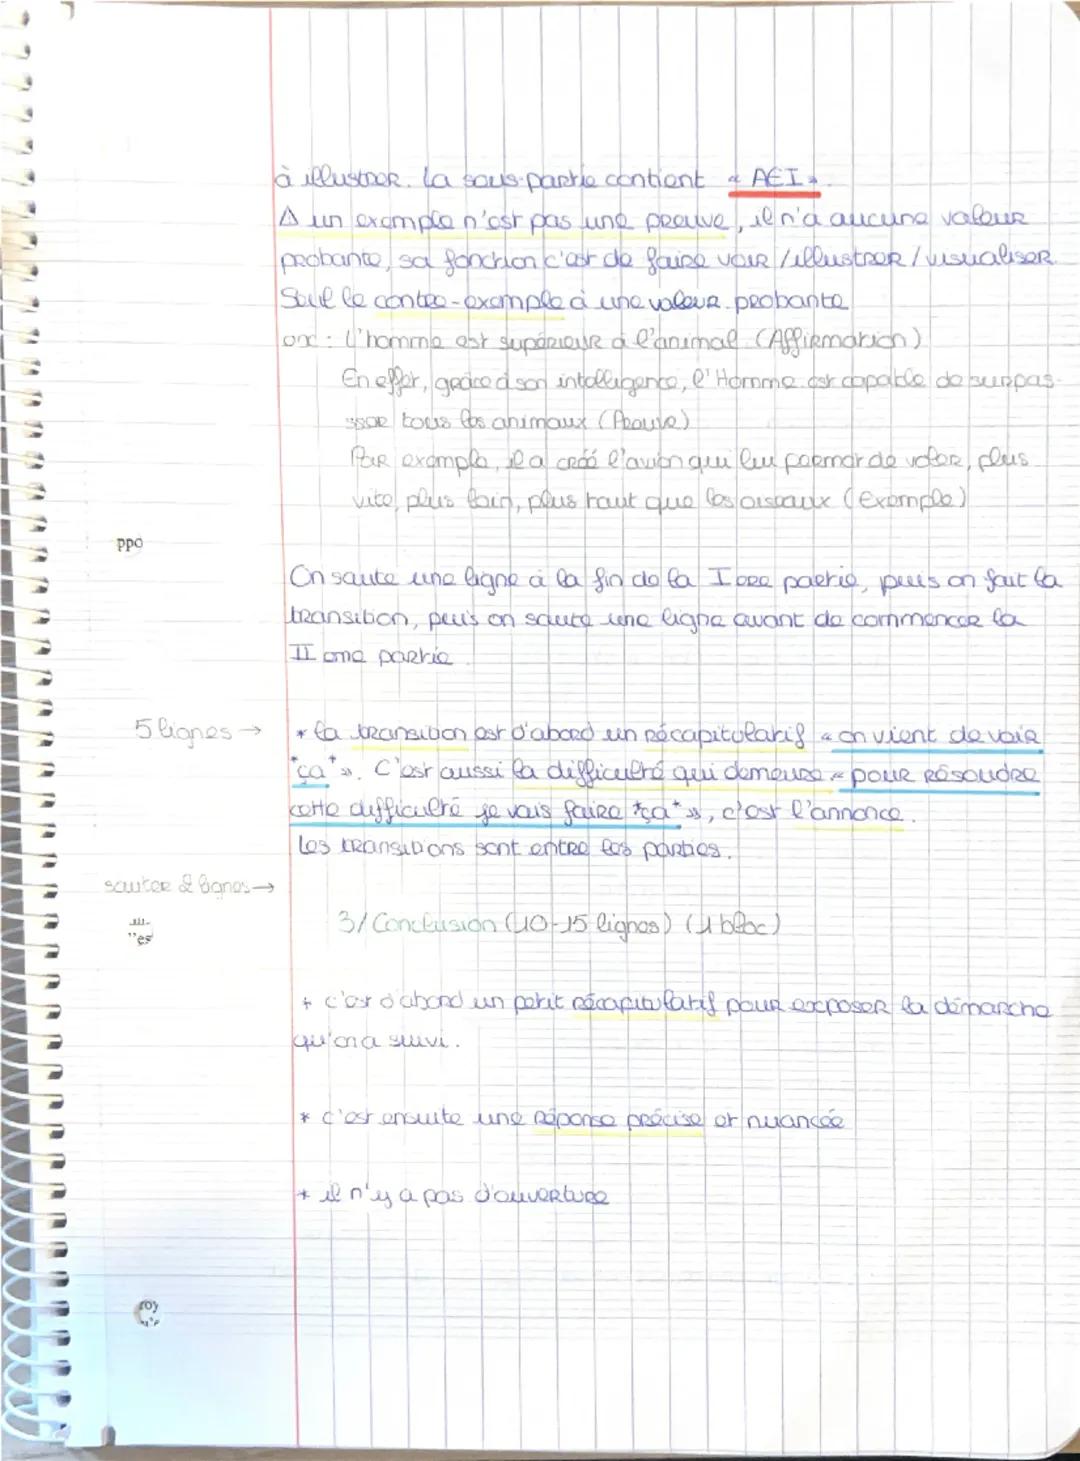 à illustrer. La sous-partie contient « AEI ».
⚠ un exemple n'est pas une preuve, il n'a aucune valeur
probante, sa fonction c'est de faire voir / illustrer / visualiser.
Seul le contre-exemple a une valeur probante
ex : L'homme est supérieur à l'animal (Affirmation)
En effet, grâce à son intelligence, l'Homme est capable de surpas-
sser tous les animaux (Preuve)
Par exemple, il a créé l'avion qui lui permet de voler, plus
vite, plus loin, plus haut que les oiseaux (Exemple)
ppo
On saute une ligne à la fin de la I ère partie, puis on fait la
transition, puis on saute une ligne avant de commencer la
II ème partie
5 lignes → * la transition est d'abord un récapitulatif « on vient de voir
*ça* ». C'est aussi la difficulté qui demeure « pour résoudre
cette difficulté je vais faire *ça* », c'est l'annonce.
Les transitions sont entre les parties.
sauter 2 lignes →
"es
3/ Conclusion (10-15 lignes) (1 bloc)
* c'est d'abord un petit récapitulatif pour exposer la démarche
qu'on a suivi.
* c'est ensuite une réponse précise et nuancée
* il n'y a pas d'ouverture
roy